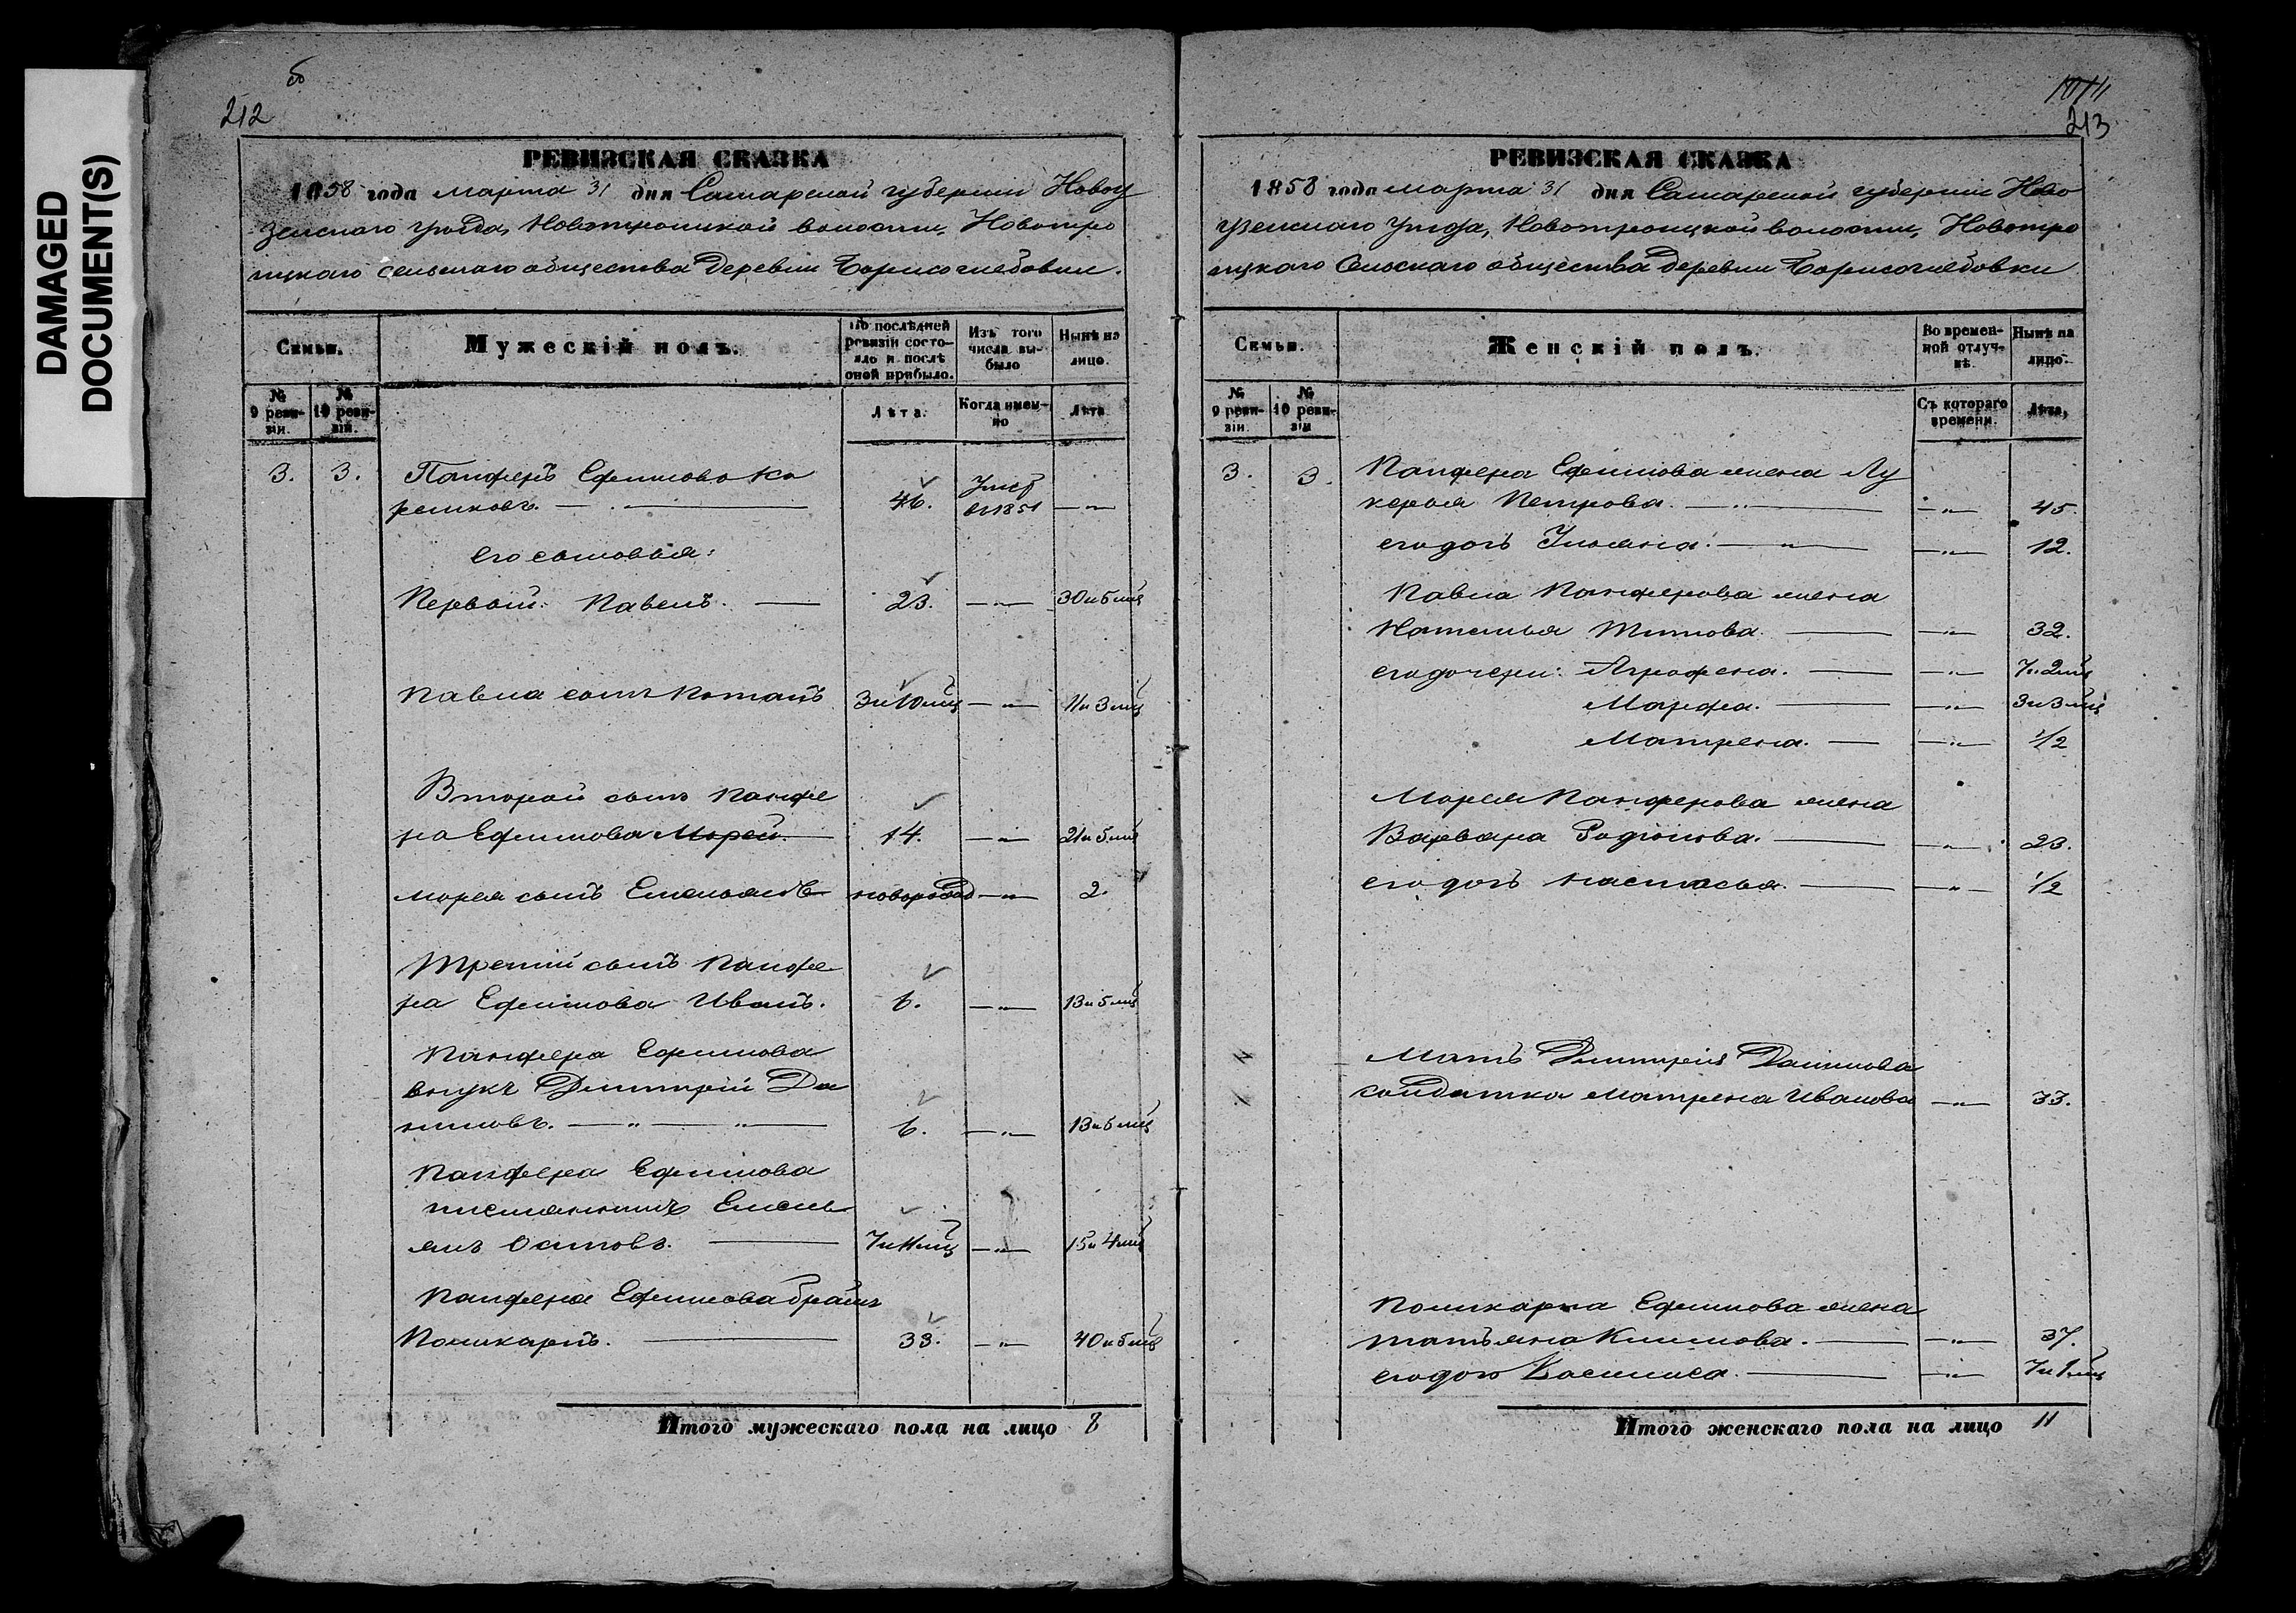 DAMAGED
DOCUMENT(S)
212
РЕВИЗСКАЯ СКАЗКА
1858 года марта 31 дня Самарской губернии Новоу
зенскаго уѣзда, Новотроицкой волости, Новотро
ицкаго сельскаго общества деревни Борисоглебовки.
Семьи.
Мужескій полъ.
По послѣдней ревизіи состояло и послѣ оной прибыло.
Изъ того числа выбыло
Ныне на лицо.
№ 9 ревизіи.
№ 10 ревизіи.
Лѣта.
Когда именно
Лѣта
3. 3. Панферъ Ефимовъ Ко
ренковъ. 46. Умер въ 1851
его сыновья:
Первый. Павелъ. 23. 30 и 5 мцъ
Павла сынъ Потапъ 3 и 10 мцъ 11 и 3 мцъ
Второй сынъ Панфе
ра Ефимова Морей. 14. 21 и 5 мцъ
Морея сынъ Емельянъ новорожд 2.
Третий сынъ Панфе
ра Ефимова Иванъ. 6. 13 и 5 мцъ
Панфера Ефимова
внукъ Димитрий Да
ниловъ. 6. 13 и 5 мцъ
Панфера Ефимова
племянникъ Емель
янъ Осиповъ. 7 и 11 мцъ 15 и 4 мцъ
Панфера Ефимова братъ
Поликарпъ. 33. 40 и 5 мцъ
Итого мужескаго пола на лицо 8
10 11
213
РЕВИЗСКАЯ СКАЗКА
1858 года марта 31 дня Самарской губернии Ново
узенскаго уѣзда, Новотроицкой волости, Новотро
ицкаго Сельскаго общества деревни Борисоглебовки
Семьи.
Женскій полъ.
Во временной отлучкѣ.
Нынѣ на лицо.
№ 9 ревизіи.
№ 10 ревизіи
Съ котораго времени.
Лѣта,
3. 3. Панфера Ефимова жена Лу
керья Петрова. 45.
его дочь Ульяна. 12.
Павла Панферова жена
Наталья Титова. 32.
его дочери: Агрофена. 7 и 2 мцъ
Марфа. 3 и 3 мцъ
Матрена. 1/2
Морея Панферова жена
Варвара Родіонова. 23.
его дочь Настасья. 1/2
Мать Димитрия Данилова
солдатка Матрена Иванова 33.
Поликарпа Ефимова жена
Татьяна Климова. 37.
его дочь Василиса. 7 и 1 мцъ
Итого женскаго пола на лицо 11